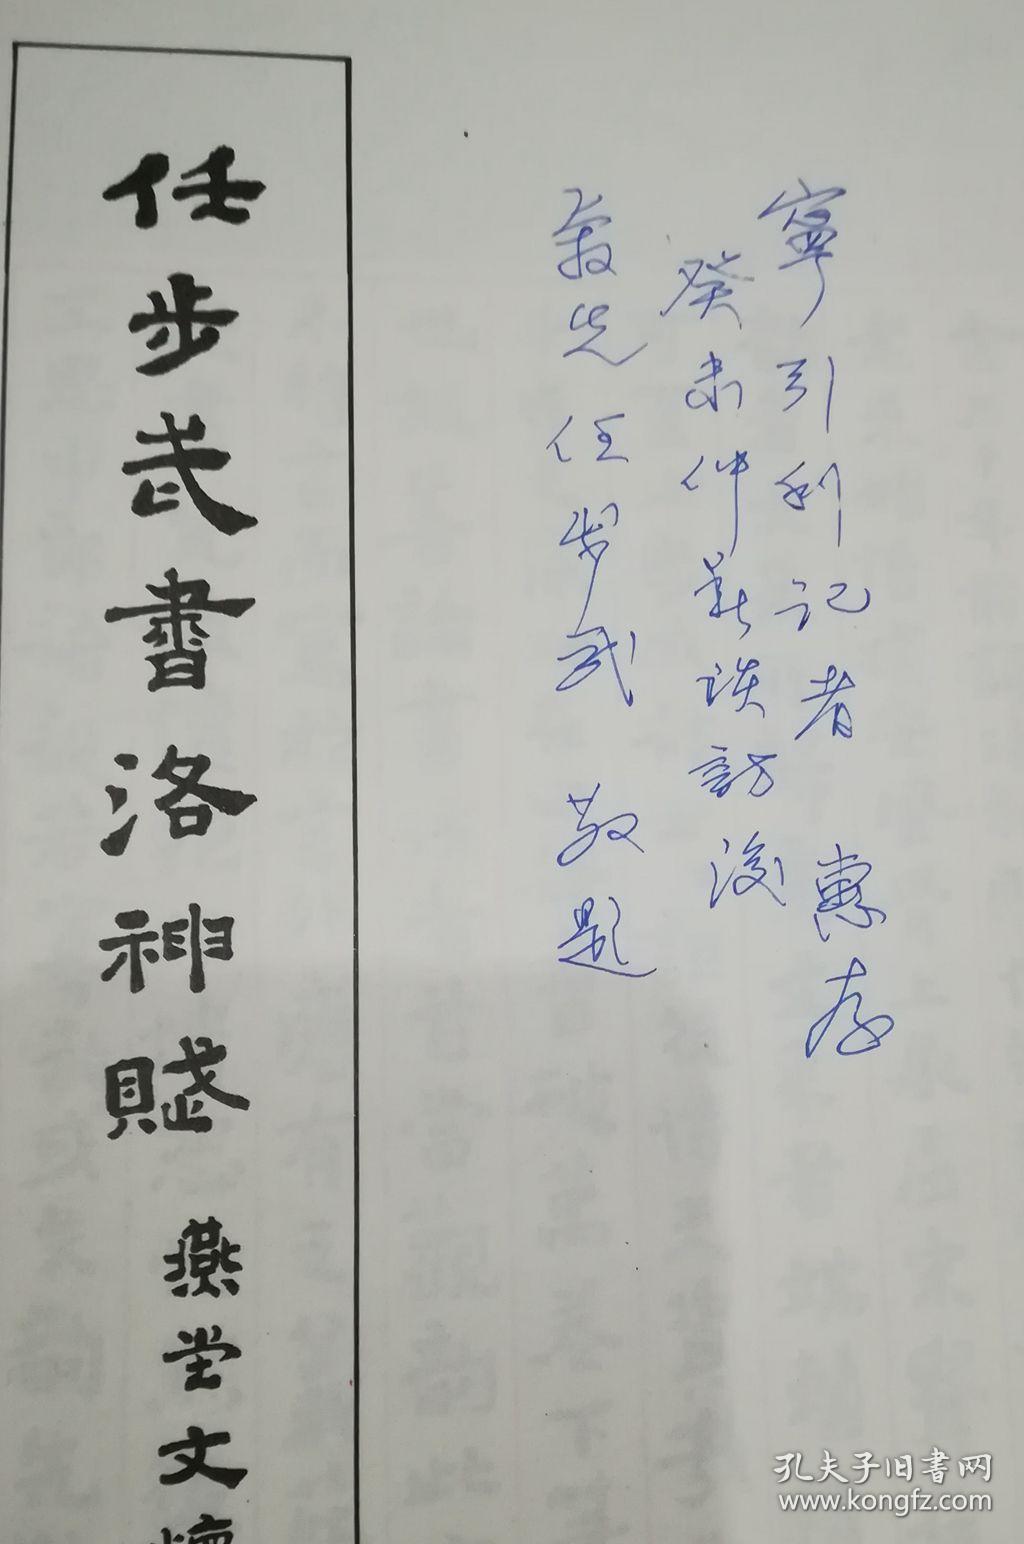 寧引利记者 惠存
癸未仲谈訪後
任步武 敬題
任步武書洛神賦 燕堂文
孔夫子旧书网
www.kongfz.com